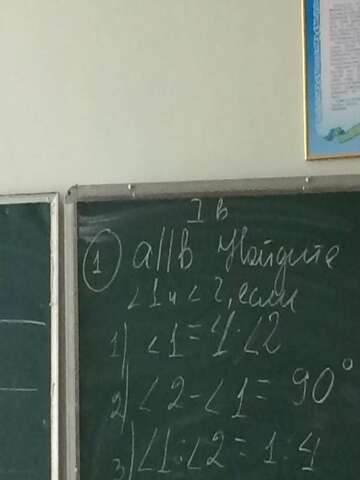 I в
1 a||b Найдите
∠1 и ∠2, если
1) ∠1 = 4·∠2
2) ∠2 - ∠1 = 90°
3) ∠1 : ∠2 = 1 : 4